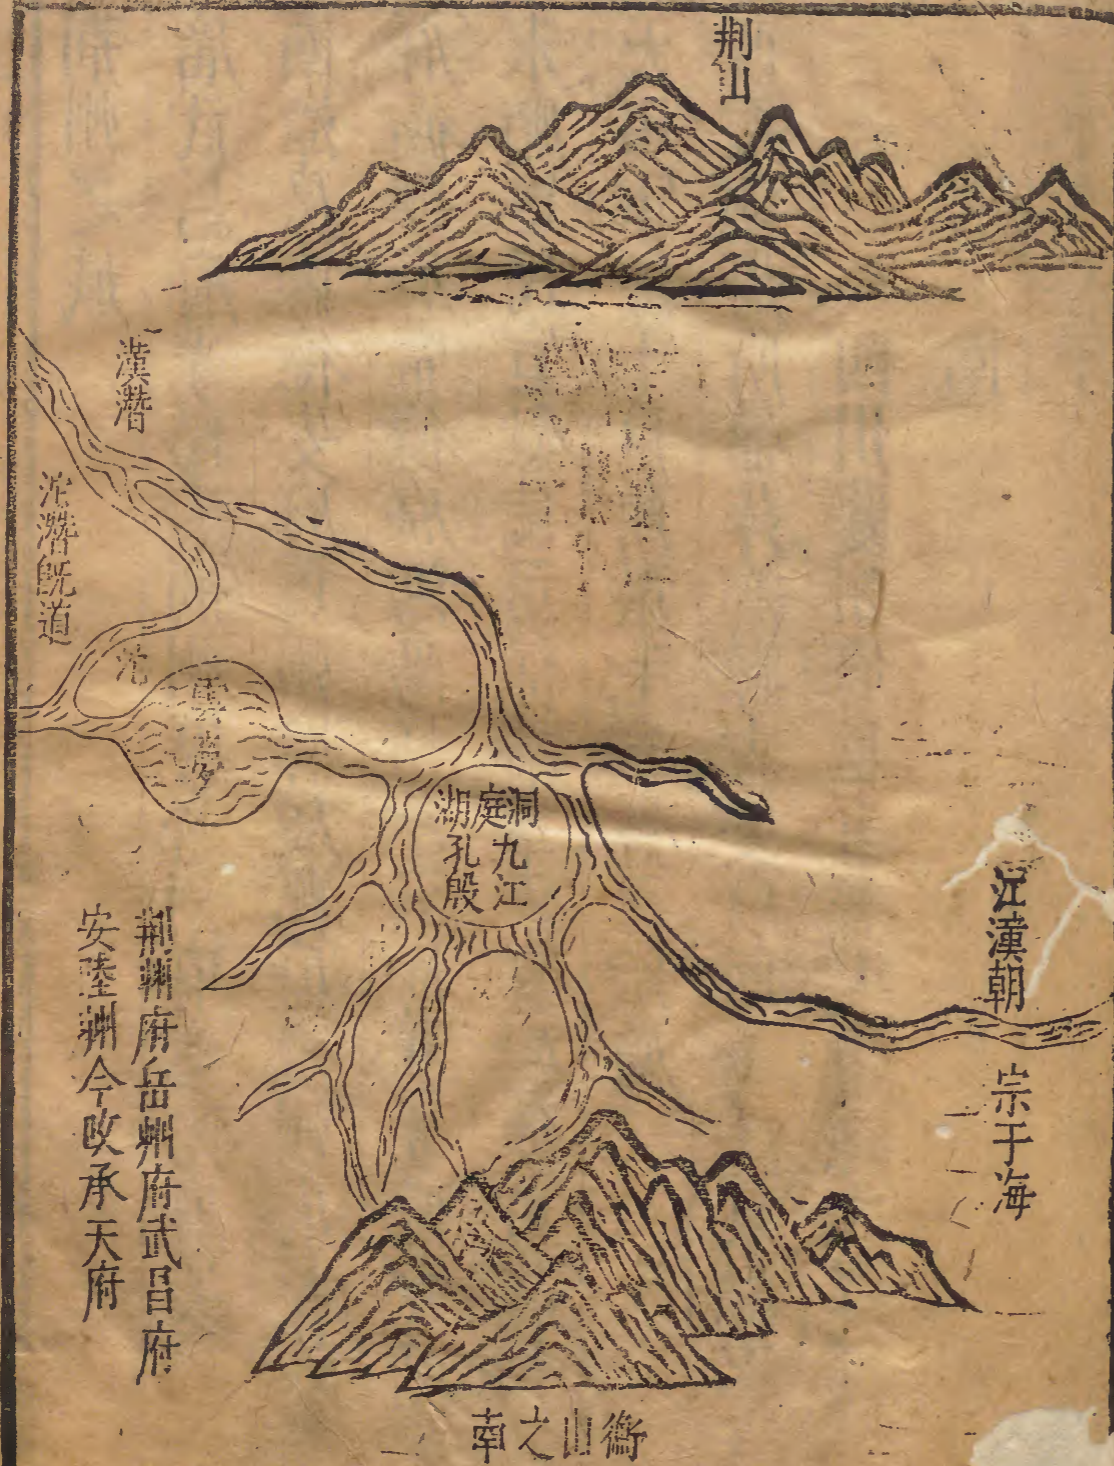 荆山
漢潛
沱潛旣道
沱
雲夢
洞庭湖
九江
孔殷
江漢朝
宗于海
荆州府岳州府武昌府
安陸州今改承天府
衡山之南